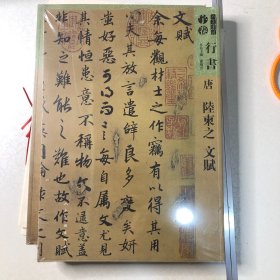 行書
唐 陸柬之 文賦
文賦
余每觀材士之作竊有以得其用
心夫其放言遣辭良多變矣妍
蚩好惡可得而言每自属文尤見
其情恒患意不稱物文不逮意盖
非知之難能之難也故作文賦